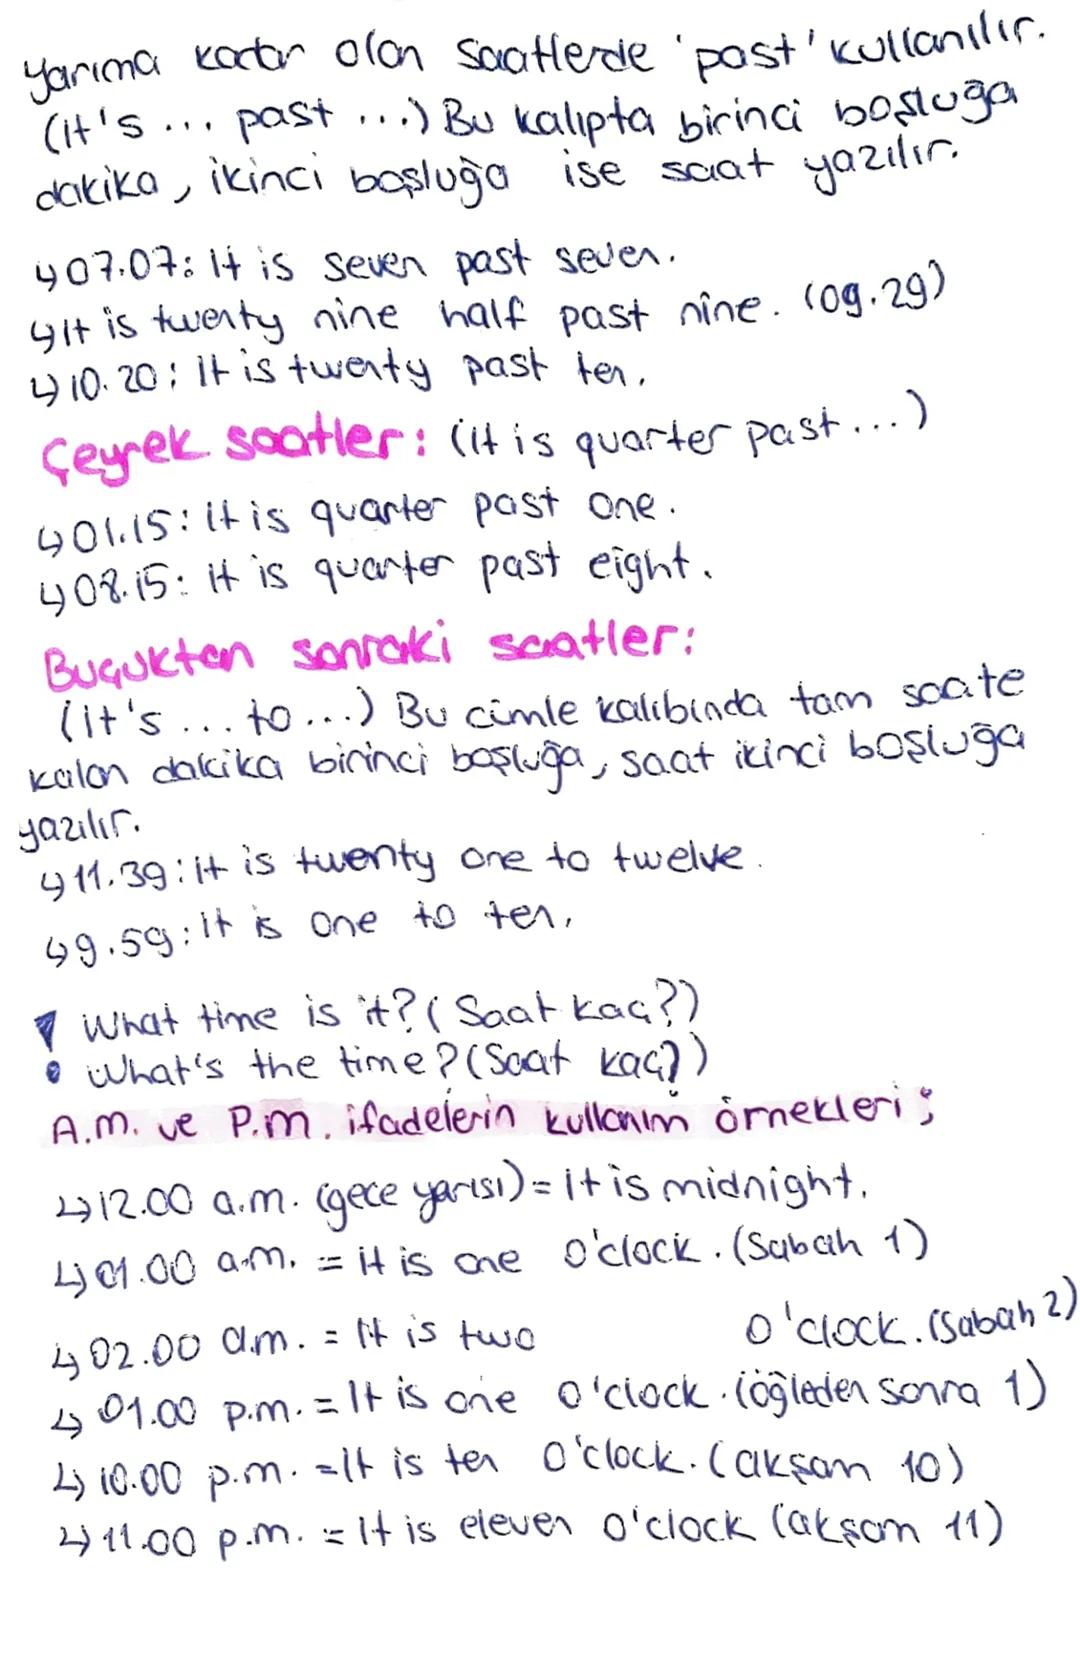 Yarıma kadar olan saatlerde 'past' kullanılır.
(It's ... past ...) Bu kalıpta birinci boşluğa
dakika, ikinci boşluğa ise saat yazılır.
↳07.07: It is seven past seven.
↳It is twenty nine half past nine. (09.29)
↳10.20: It is twenty past ten.
Çeyrek saatler: (it is quarter past ...)
↳01.15: It is quarter past one.
↳08.15: It is quarter past eight.
Buçuktan sonraki saatler:
(it's ... to ...) Bu cümle kalıbında tam saate
kalan dakika birinci boşluğa, saat ikinci boşluğa
yazılır.
↳11.39: It is twenty one to twelve.
↳9.59: It is one to ten.
! What time is it? (Saat kaç?)
What's the time? (Saat kaç?)
A.m. ve P.m. ifadelerin kullanım örnekleri;
↳12.00 a.m. (gece yarısı) = It is midnight.
↳01.00 a.m. = it is one o'clock. (Sabah 1)
↳02.00 a.m. = It is two o'clock. (Sabah 2)
↳01.00 p.m. = It is one o'clock. (öğleden sonra 1)
↳10.00 p.m. = It is ten o'clock. (akşam 10)
↳11.00 p.m. = It is eleven o'clock (akşam 11)